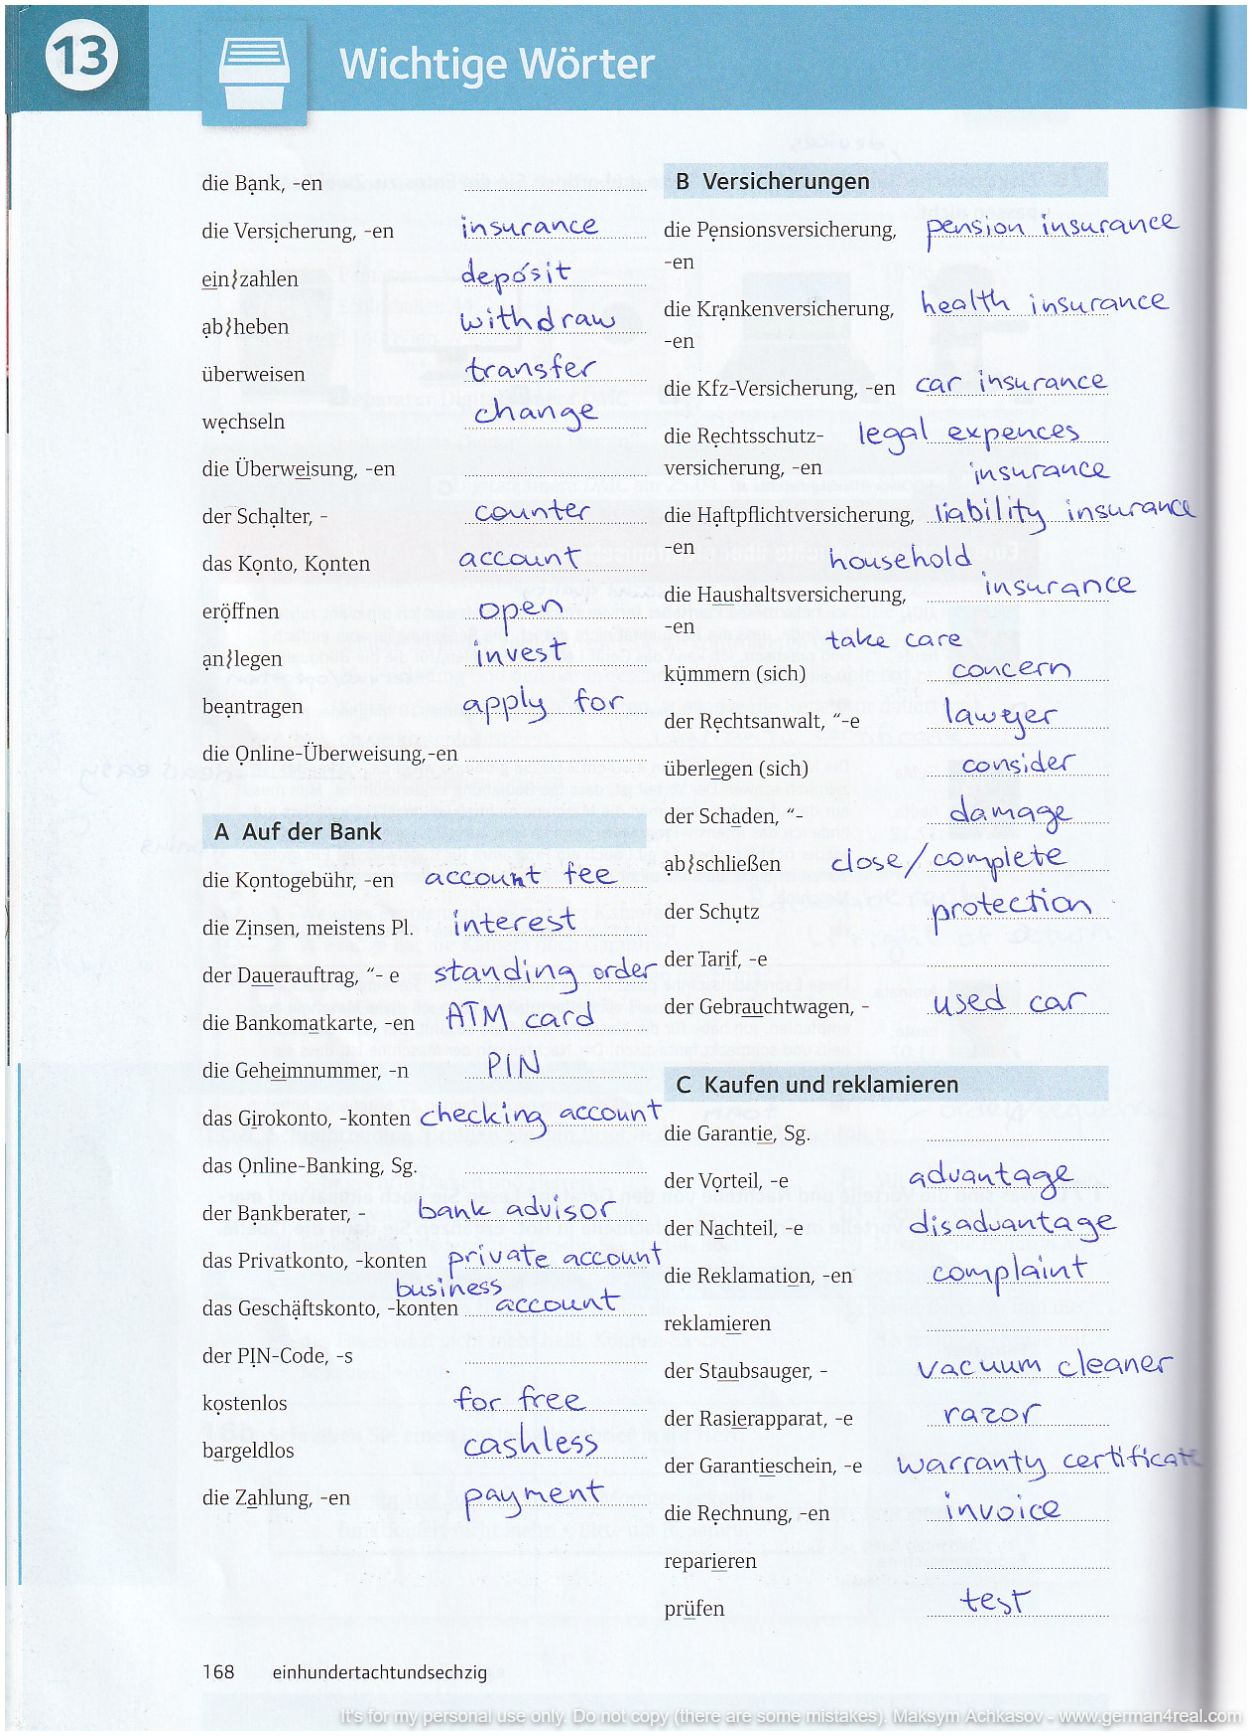 13
Wichtige Wörter
die Bank, -en
die Versicherung, -en insurance
ein}zahlen deposit
ab}heben withdraw
überweisen transfer
wechseln change
die Überweisung, -en
der Schalter, - counter
das Konto, Konten account
eröffnen open
an}legen invest
beantragen apply for
die Online-Überweisung,-en
A Auf der Bank
die Kontogebühr, -en account fee
die Zinsen, meistens Pl. interest
der Dauerauftrag, “- e standing order
die Bankomatkarte, -en ATM card
die Geheimnummer, -n PIN
das Girokonto, -konten checking account
das Online-Banking, Sg.
der Bankberater, - bank advisor
das Privatkonto, -konten private account
business
das Geschäftskonto, -konten account
der PIN-Code, -s
kostenlos for free
bargeldlos cashless
die Zahlung, -en payment
B Versicherungen
die Pensionsversicherung, pension insurance
-en
die Krankenversicherung, health insurance
-en
die Kfz-Versicherung, -en car insurance
die Rechtsschutz- legal expences
versicherung, -en insurance
die Haftpflichtversicherung, liability insurance
-en household
die Haushaltsversicherung, insurance
-en take care
kümmern (sich) concern
der Rechtsanwalt, “-e lawyer
überlegen (sich) consider
der Schaden, “- damage
ab}schließen close/complete
der Schutz protection
der Tarif, -e
der Gebrauchtwagen, - used car
C Kaufen und reklamieren
die Garantie, Sg.
der Vorteil, -e advantage
der Nachteil, -e disadvantage
die Reklamation, -en complaint
reklamieren
der Staubsauger, - vacuum cleaner
der Rasierapparat, -e razor
der Garantieschein, -e warranty certificate
die Rechnung, -en invoice
reparieren
prüfen test
168 einhundertachtundsechzig
It's for my personal use only. Do not copy (there are some mistakes). Maksym Achkasov - www.german4real.com